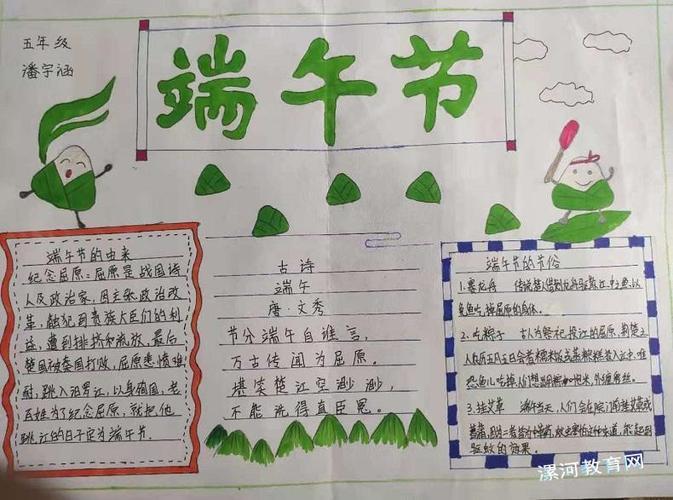 五年级
潘宇涵
端午节
端午节的由来
纪念屈原：屈原是战国诗
人及政治家，因主张政治改
革，触犯到贵族大臣们的利
益，遭到排挤和流放，最后
楚国被秦国打败，屈原悲愤难
耐，跳入汨罗江，以身殉国，老
百姓为了纪念屈原，就把他
跳江的日子定为端午节。
古诗
端午
唐·文秀
节分端午自谁言，
万古传闻为屈原。
堪笑楚江空渺渺，
不能洗得直臣冤。
端午节的节俗
1.赛龙舟
鱼吃掉屈原的身体。
2.吃粽子 古人为祭祀投江的屈原
3.挂艾草 端午当天，人们会在
驱蚊的效果。
漯河教育网